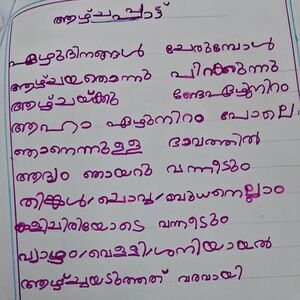 ആഴ്ചപ്പാട്ട്
ഏഴുദിനങ്ങൾ ചേരുമ്പോൾ
ആഴ്ചയതൊന്നു പിറക്കുന്നു
ആഴ്ചയ്ക്കു ണ്ടേഏഴുനിറം
ആഹാ ഏഴുനിറം പോലെ
ഞാനെന്നുള്ള ഭാവത്തിൽ
ആദ്യം ഞായറു വന്നീടും
തിങ്കൾ/ചൊവ്വ/ബുധനെല്ലാം
കളിചിരിയോടെ വന്നീടും
വ്യാഴം/വെള്ളി/ശനിയായൽ
ആഴ്ച്ചയടുത്തത് വരവായി